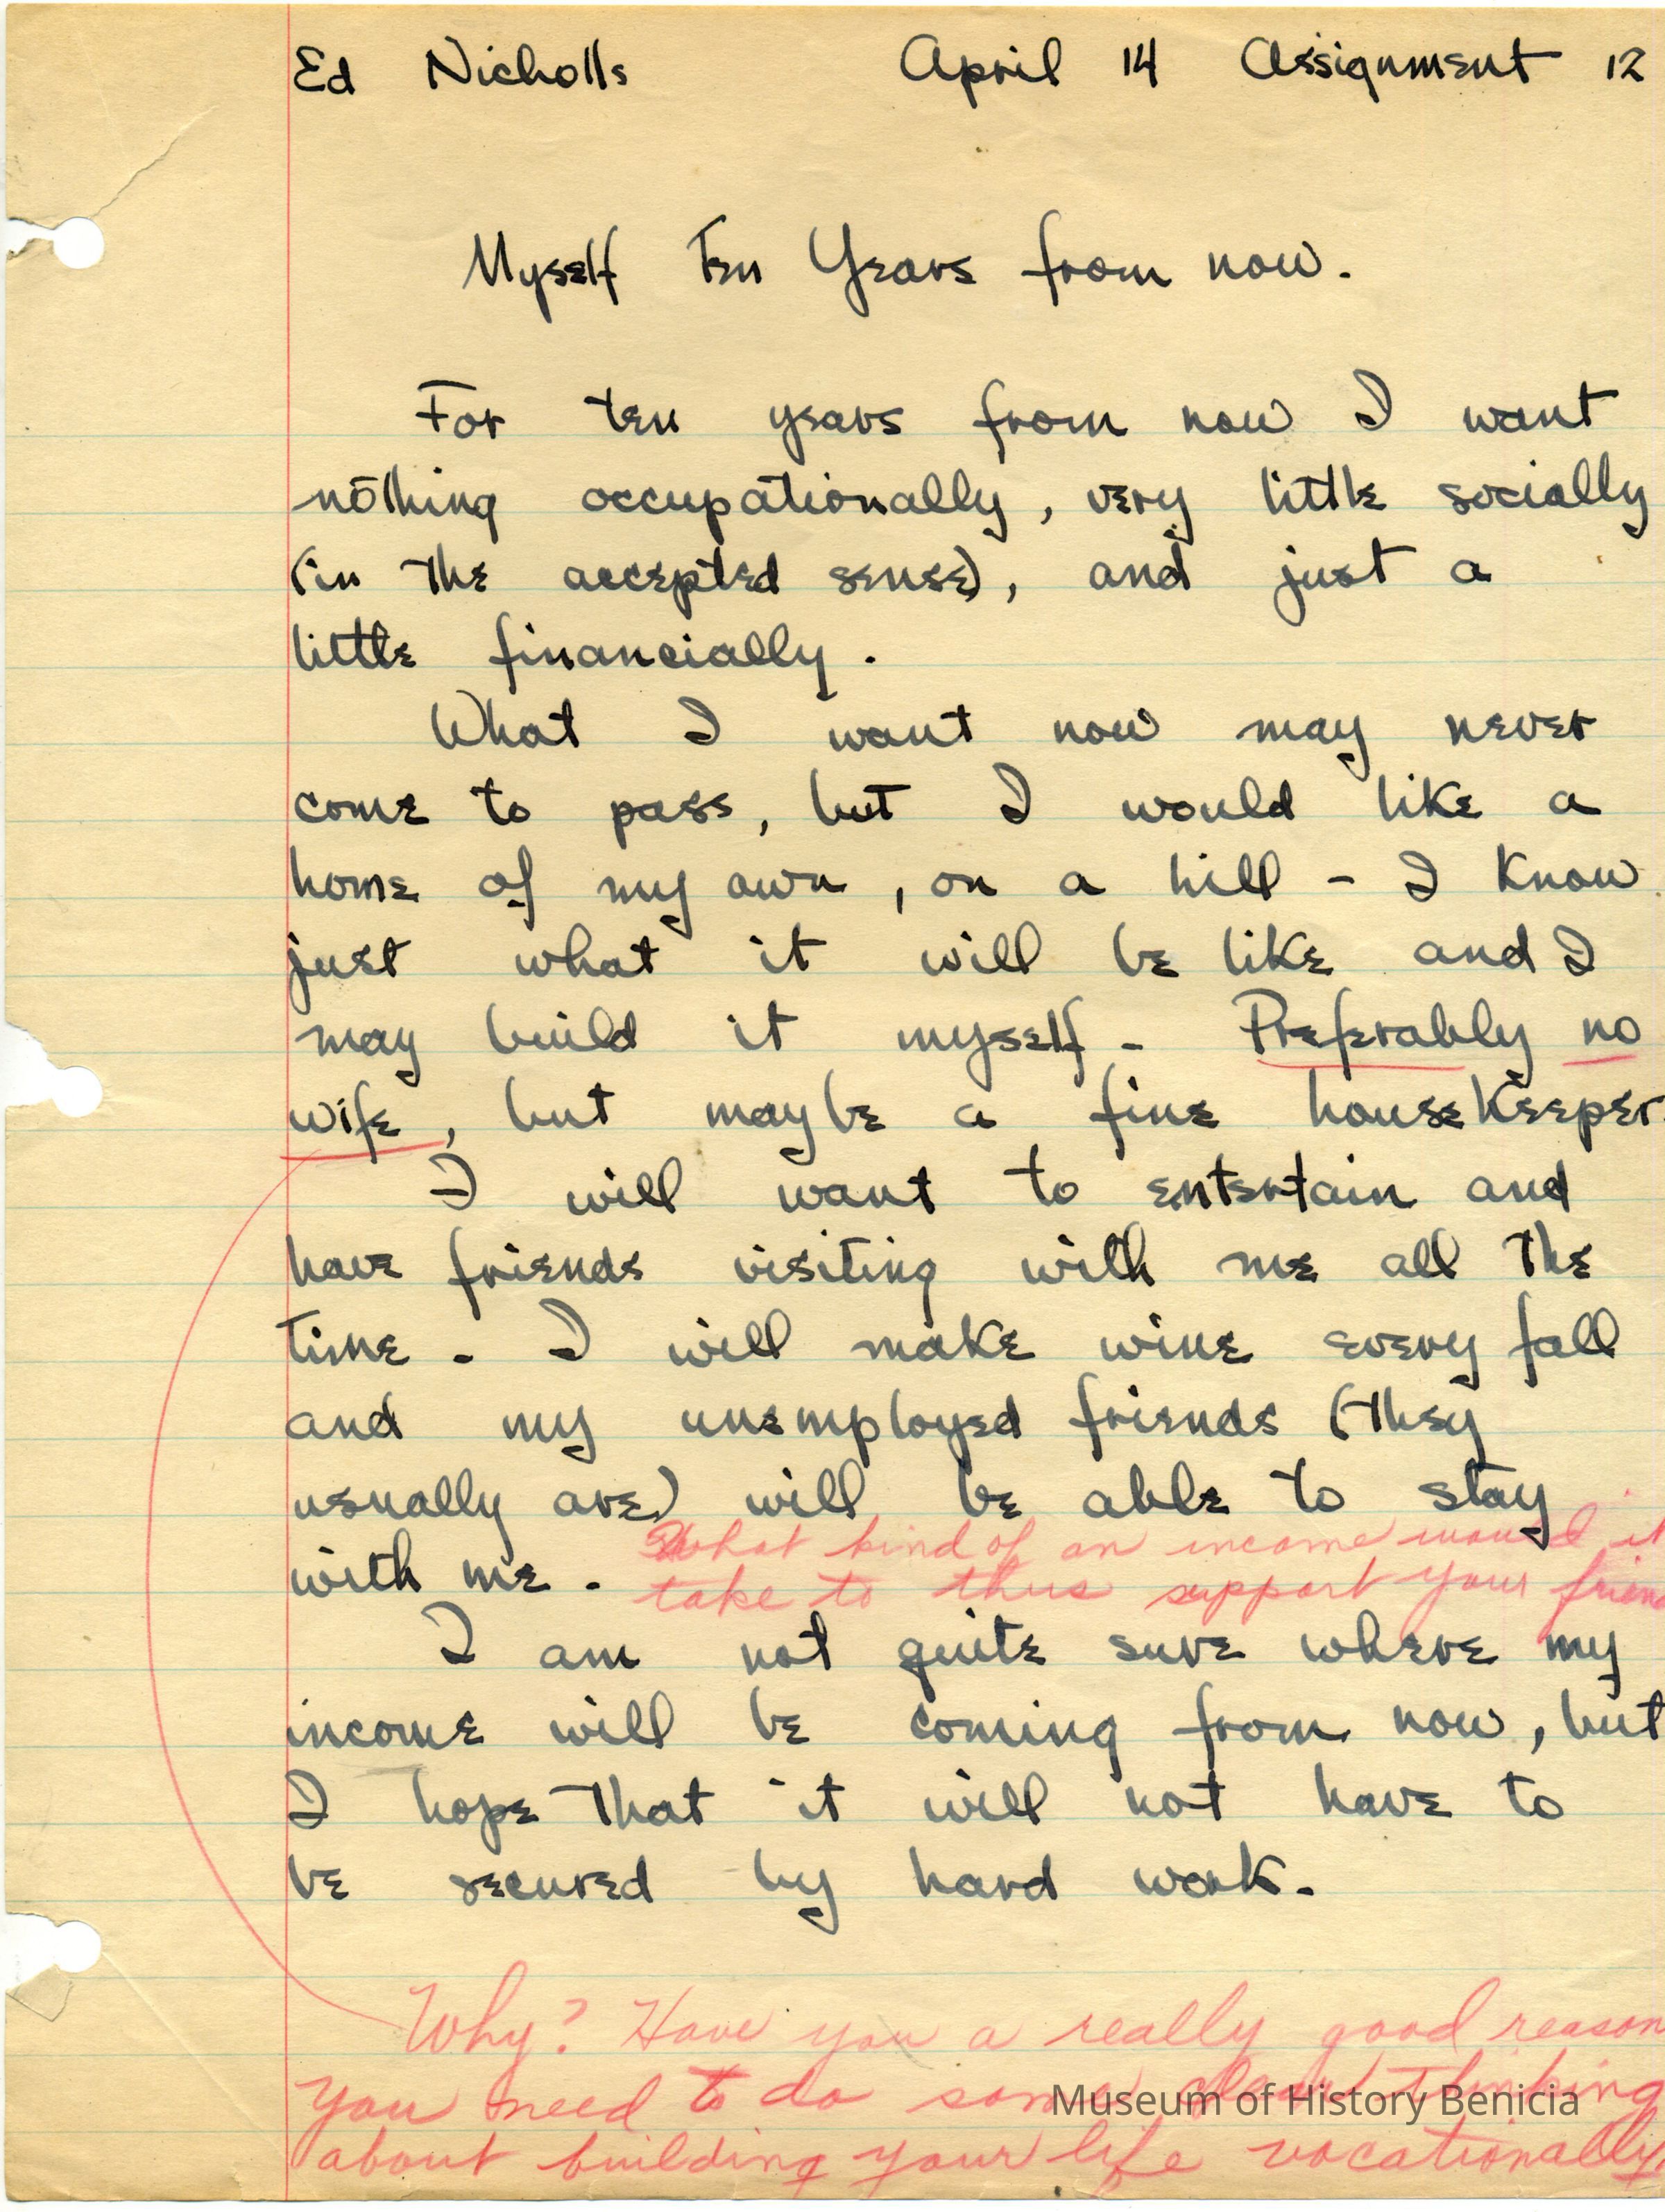 Ed Nicholls April 14 Assignment 12
Myself Ten Years from now.
For ten years from now I want
nothing occupationally, very little socially
(in the accepted sense), and just a
little financially.
What I want now may never
come to pass, but I would like a
home of my own, on a hill - I know
just what it will be like and I
may build it myself - Preferably no
wife, but maybe a fine housekeeper.
I will want to entertain and
have friends visiting with me all the
time. I will make wine every fall
and my unemployed friends (they
usually are) will be able to stay
What kind of an income would it
with me.
take to thus support your frien
I am not quite sure where my
income will be coming from now, but
I hope that it will not have to
be secured by hard work.
Why? Have you a really good reason
You need to do some thinking
Museum of History Benicia
about building your life vocationally.